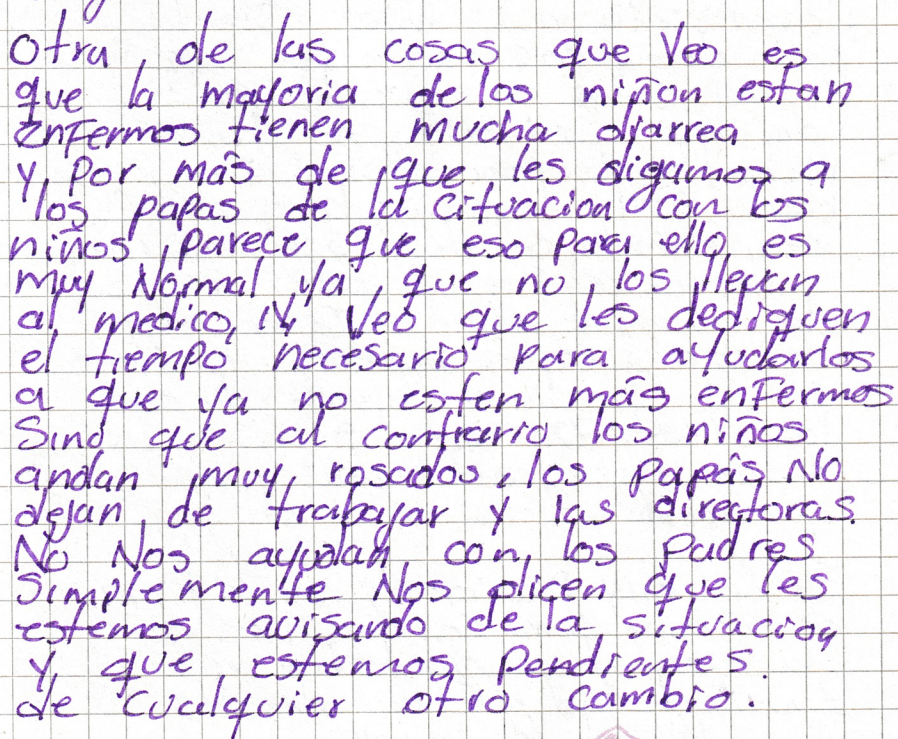 Otra de las cosas que veo es
que la mayoria de los niñon estan
Enfermos tienen mucha diarrea
y por más de que les digamos a
los papas de la cituacion con los
niños, parece que eso para ello es
muy Normal ya que no los llevan
al medico, Ni Veo que les dediquen
el tiempo necesario para ayudarlos
a que ya no esten más enfermos
Sino que al contrario los niños
andan muy rosados, los papás No
dejan de trabajar y las directoras.
No Nos ayudan con los Padres
Simplemente Nos dicen que les
estemos avisando de la situación
Y que estemos Pendientes.
de Cualquier otro cambio.